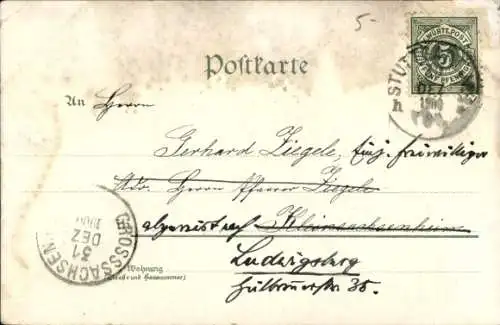 5-
K. WÜRTT. POST
5
FÜNF PFENNIG
STUT
DEZ
1900
h
Postkarte
An Herrn
Gerhard Ziegele, Einj. freiwilliger
Adr. Herrn Pfarrer Ziegele
Kleinsachsenheim
Ludwigsburg
35.
GROSSSACHSEN
31
DEZ
1900
Wohnung
(Straße und Hausnummer)